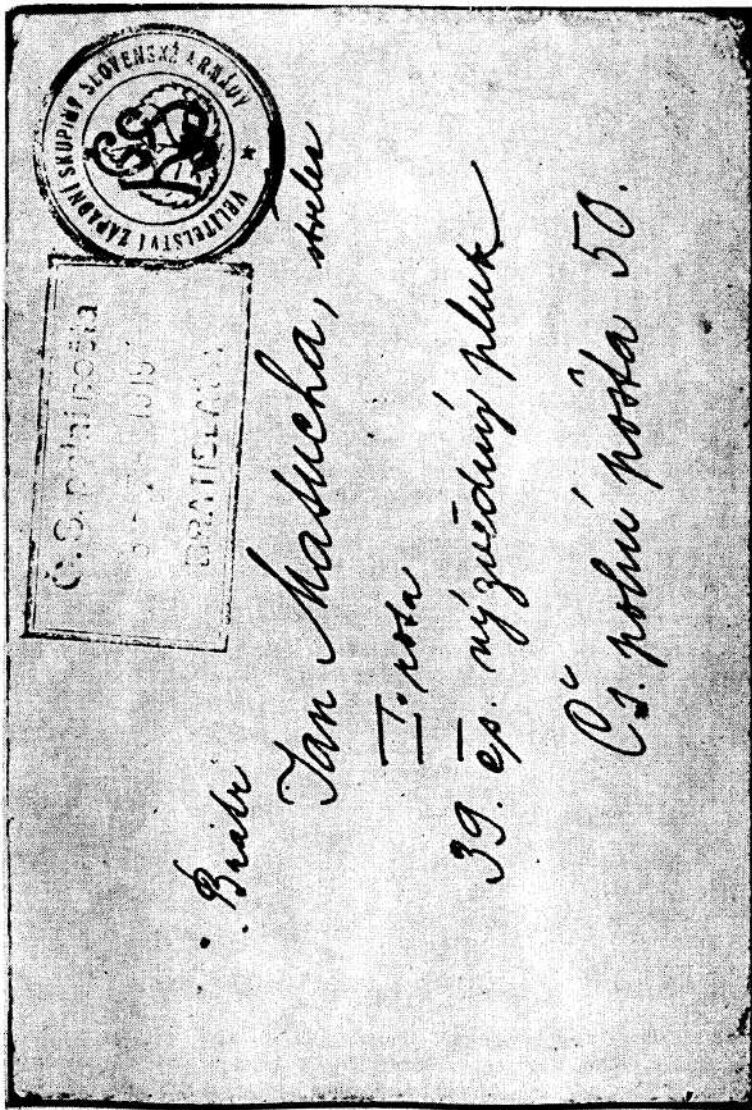 VELITELSTVÍ ZÁPADNÍ SKUPINY SLOVENSKÉ ARMÁDY
Č.S. polní pošta
BRATISLAVA
Bratr
Jan Masucha, střelec
I. rota
39. čp. výzvědný pluk
Čs. polní pošta 50.